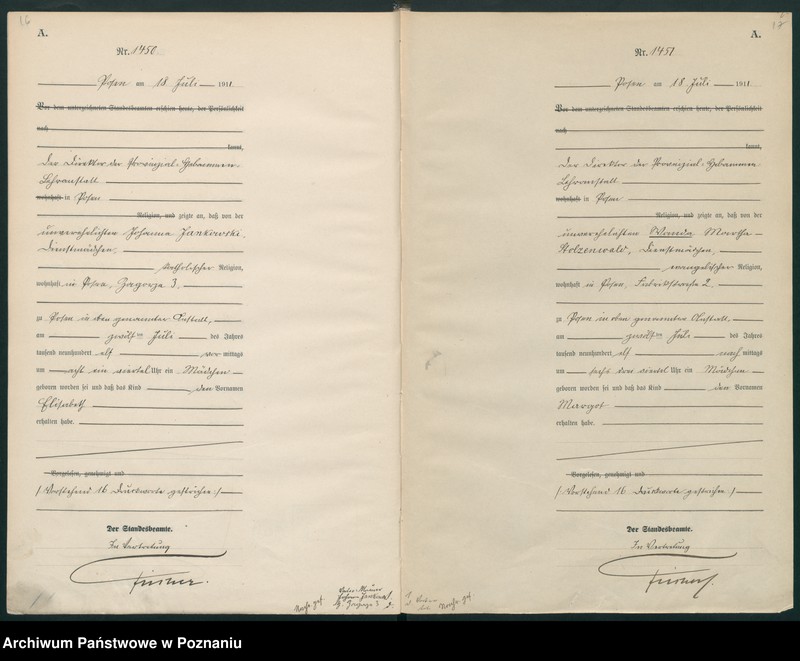 16
A.
Nr. 1450
Posen am 18 Juli 1911
Vor dem unterzeichneten Standesbeamten erschien heute, der Persönlichkeit
nach
kannt,
Der Direktor der Provinzial-Hebammen-
Lehranstalt
wohnhaft in Posen
Religion, und zeigte an, daß von der
unverehelichten Johanna Jankowski,
Dienstmädchen,
katholischer Religion,
wohnhaft in Posen, Zagorze 3,
zu Posen in der genannten Anstalt,
am zwölften Juli des Jahres
tausend neunhundert elf vor mittags
um acht ein viertel Uhr ein Mädchen
geboren worden sei und daß das Kind den Vornamen
Elisabeth
erhalten habe.
Vorgelesen, genehmigt und
/: Vorstehend 16 Druckworte gestrichen :/
Der Standesbeamte.
In Vertretung
A.
Nr. 1451
Posen am 18 Juli 1911
Vor dem unterzeichneten Standesbeamten erschien heute, der Persönlichkeit
nach
kannt,
Der Direktor der Provinzial-Hebammen-
Lehranstalt
wohnhaft in Posen
Religion, und zeigte an, daß von der
unverehelichten Wanda Martha
Holzenwald, Dienstmädchen,
evangelischer Religion,
wohnhaft in Posen, Fabrikstraße 2,
zu Posen in der genannten Anstalt,
am zwölften Juli des Jahres
tausend neunhundert elf nach mittags
um sechs drei viertel Uhr ein Mädchen
geboren worden sei und daß das Kind den Vornamen
Margot
erhalten habe.
Vorgelesen, genehmigt und
/: Vorstehend 16 Druckworte gestrichen :/
Der Standesbeamte.
In Vertretung
Archiwum Państwowe w Poznaniu